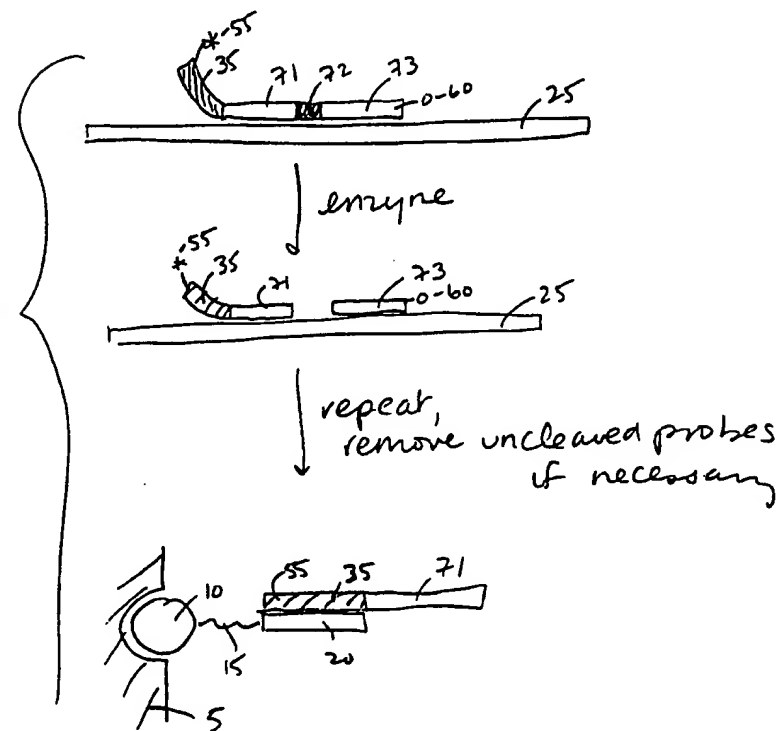 *-55
35
71 72 73
0-60
25
enzyne
*-55
35
71
73
0-60
25
repeat,
remove uncleaved probes
if necessary
10
15
55 35 71
20
5